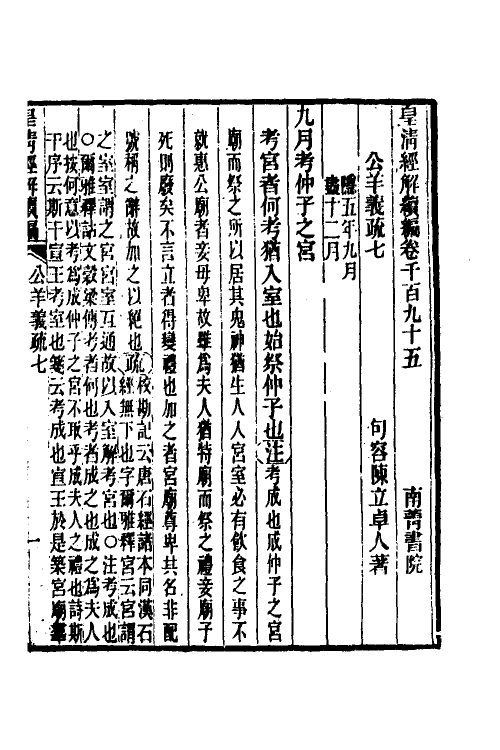 皇淸經解續編卷千百九十五
南菁書院
公羊義疏七
句容陳立卓人著
隱五年九月
盡十二月
九月考仲子之宮
考宮者何考猶入室也始祭仲子也注考成也成仲子之宮
廟而祭之所以居其鬼神猶生人入宮室必有飲食之事不
就惠公廟者妾母卑故雖爲夫人猶特廟而祭之禮妾廟子
死則廢矣不言立者得變禮也加之者宮廟尊卑共名非配
號稱之辭故加之以絕也疏校勘記云唐石經諸本同漢石
經無下也字爾雅釋宮云宮謂
之室室謂之宮宮室互通故以入室解考宮也○注考成也
○爾雅釋詁文穀梁傳考者何也考者成之也成之爲夫人
也按何意以考爲成仲子之宮不取乎成夫人之禮也詩斯
干序云斯干宣王考室也箋云考成也宣王於是築宮廟羣
皇淸經解續編
公羊義疏七
一